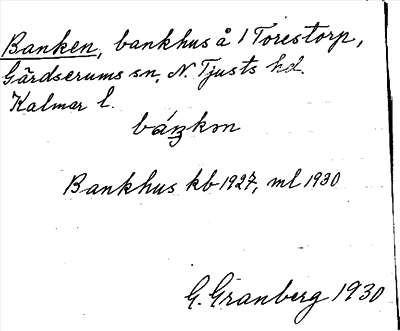 Banken, bankhus å 1 Torestorp,
Gärdserums sn, N. Tjusts hd.
Kalmar l.
báŋkon
Bankhus kb 1927, ml 1930
G. Granberg 1930